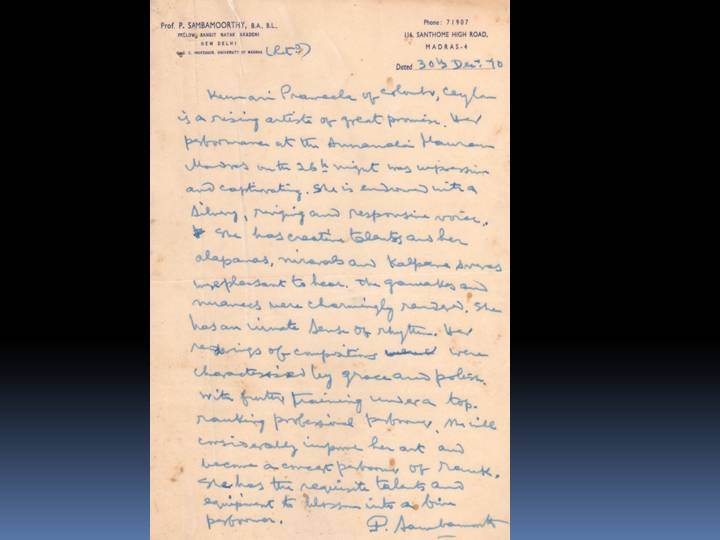 Prof. P. SAMBAMOORTHY, B.A., B.L.,
FELLOW, SANGIT NATAK AKADEMI
NEW DELHI
PROFESSOR, UNIVERSITY OF MADRAS (Retd)
Phone: 71907
116, SANTHOME HIGH ROAD,
MADRAS-4
Dated 30th Dec. 70
Kumari Praveela of Colombo, Ceylon
is a rising artiste of great promise. Her
performance at the Annamalai Manram
Madras on the 26th night was impressive
and captivating. She is endowed with a
silvery, ringing and responsive voice.
She has creative talents and her
alapanas, niravals and Kalpana svaras
were pleasant to hear. The gamakas and
nuances were charmingly rendered. She
has an innate sense of rhythm. Her
renderings of compositions were
characterised by grace and polish.
With further training under a top-
ranking professional performer, she will
considerably improve her art and
become a concert performer of rank.
She has the requisite talents and
equipment to blossom into a fine
performer.
P. Sambamoorthy